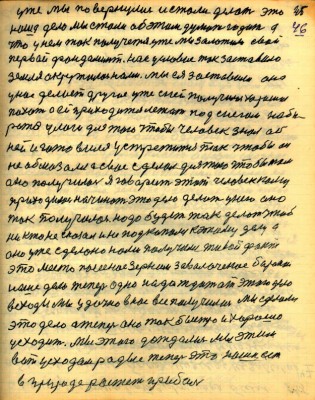 уже мы поверищие и стали делать это 45
наше дело мы стали об этом думать годик а 46
что у нем так получится уже мы заложили свой
первый фундамент. нас условие так заставило
земля окружила нами. мы ея заставили она
нам делает другое уже с ней получилось хорошо
пахот о ей приходится лежать под снегом набе
рется влаги для того чтобы человек знал об
ней и готовился устретится так чтобы он
не обмазался а свое сделал для того чтобы там
оно получилось Я говорит этот человек кому
приходилось начинать это дело делать у него оно
так получилось надо будет так делать чтоб
никто не сказал и не подкопался к этому делу а
оно уже сделано нами получили живой факт
это место посеяное зерном заволоченое бараной
наше дело теперь одно надо ждать от этого дела
всходы мы удачно в нее все получили мы сделали
это дело а теперь оно так быстро и хорошо
уходит. мы этого дождались мы этим
вот уходам рады теперь это наше все
в природе растет прибыль